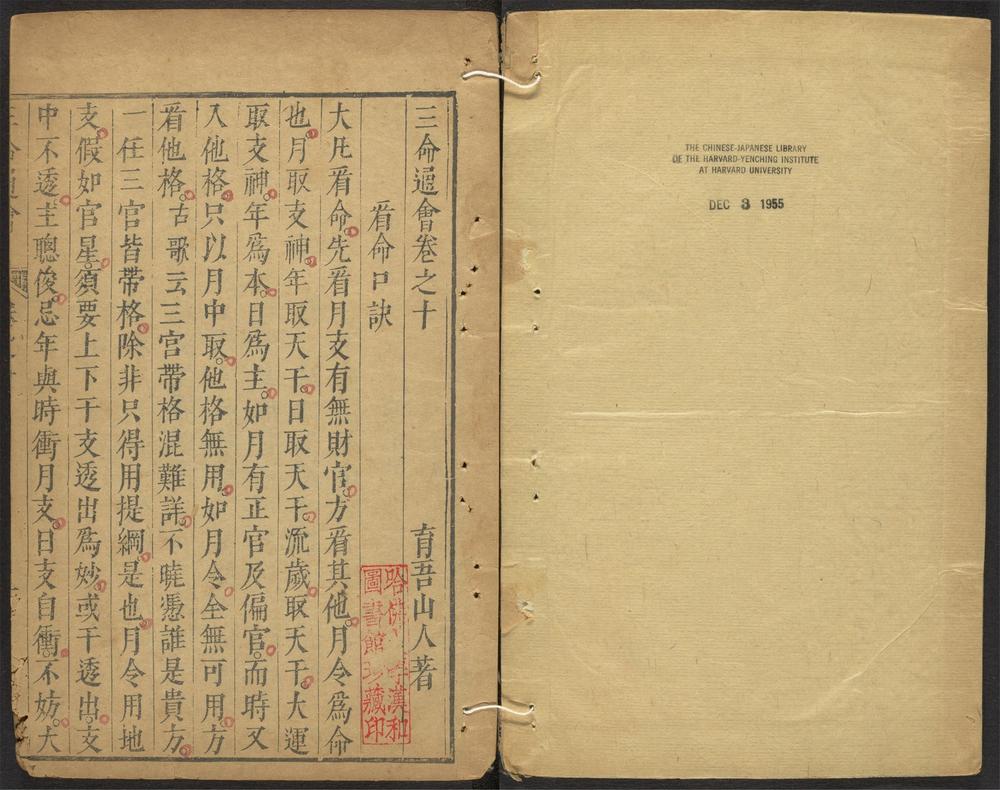 三命通會卷之十
育吾山人著
看命口訣
大凡看命先看月支有無財官方看其他月令爲命
也月取支神年取天干日取天干流歲取天干大運
取支神年爲本日爲主如月有正官及偏官而時又
入他格只以月中取他格無用如月令全無可用方
看他格古歌云三宮帶格混難詳不曉憑誰是貴方
一任三官皆帶格除非只得用提綱是也月令用地
支假如官星須要上下干支透出爲妙或干透出支
中不透主聰俊忌年與時衝月支日支自衝不妨大
哈佛漢和
圖書館珍藏印
THE CHINESE-JAPANESE LIBRARY
OF THE HARVARD-YENCHING INSTITUTE
AT HARVARD UNIVERSITY
DEC 3 1955